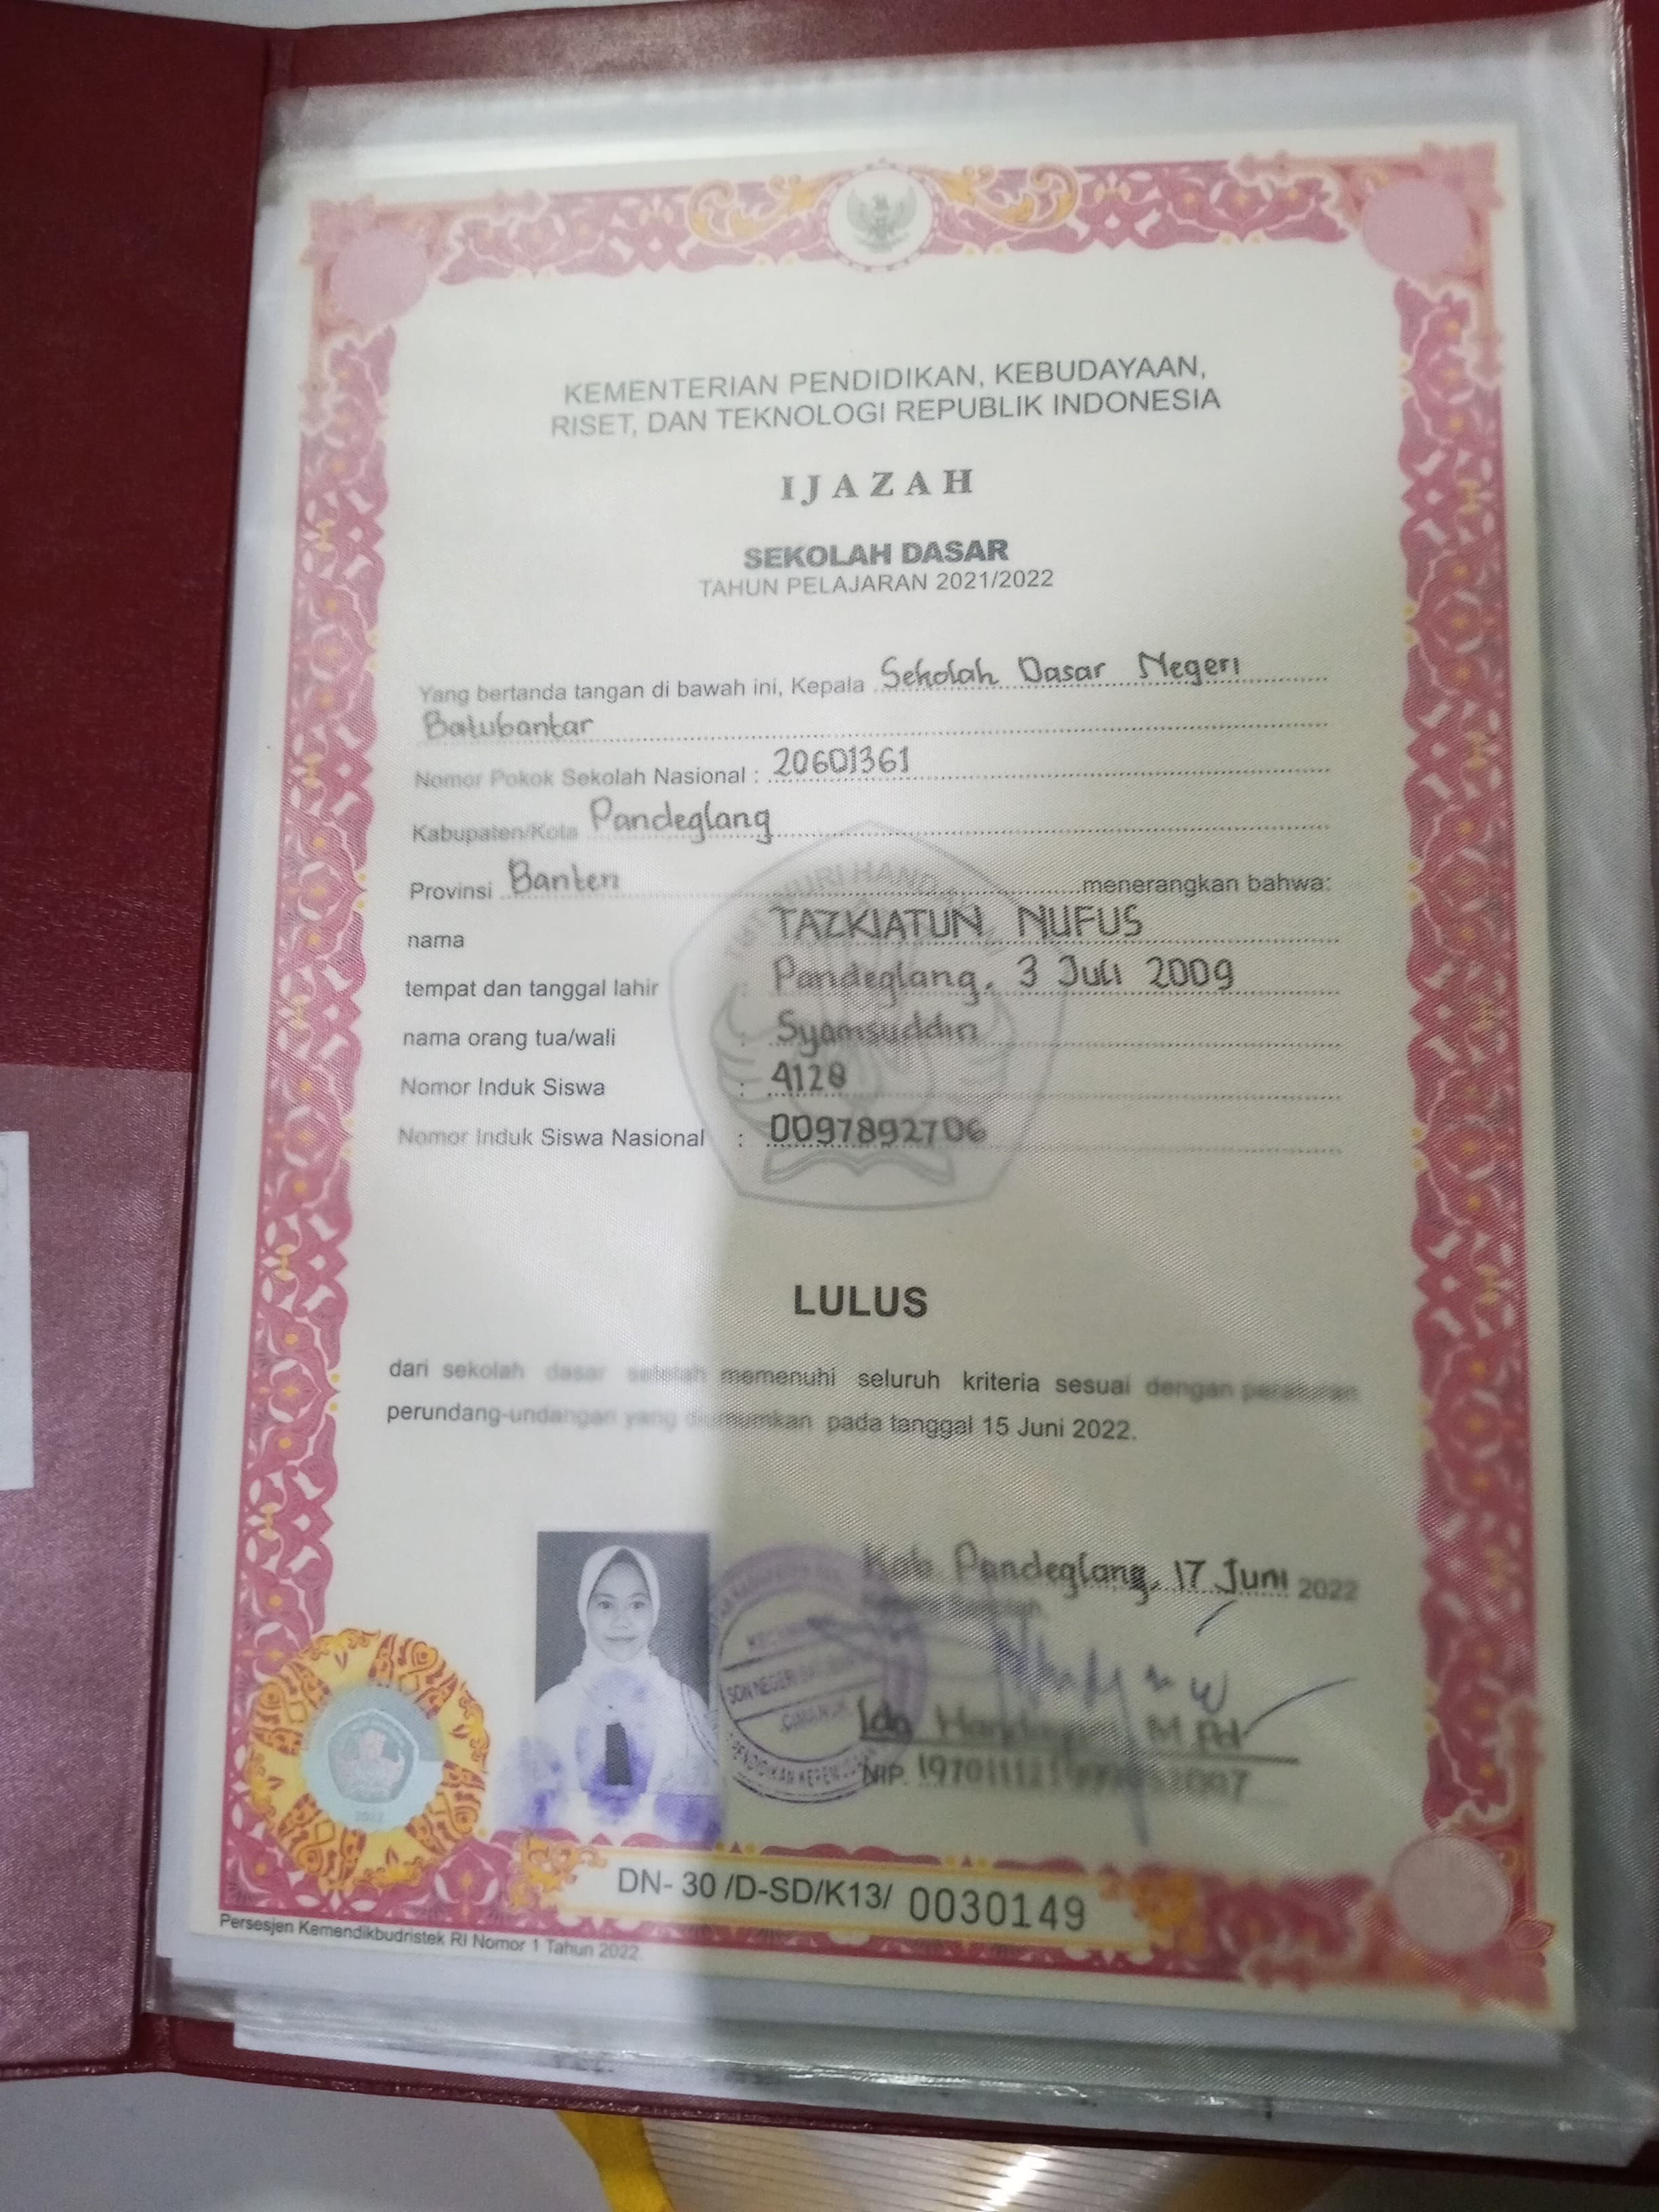 KEMENTERIAN PENDIDIKAN, KEBUDAYAAN,
RISET, DAN TEKNOLOGI REPUBLIK INDONESIA
IJAZAH
SEKOLAH DASAR
TAHUN PELAJARAN 2021/2022
Yang bertanda tangan di bawah ini, Kepala Sekolah Dasar Negeri
Batubantar
Nomor Pokok Sekolah Nasional : 20601361
Kabupaten/Kota Pandeglang
Provinsi Banten menerangkan bahwa:
nama TAZKIATUN NUFUS
tempat dan tanggal lahir : Pandeglang, 3 Juli 2009
nama orang tua/wali : Syamsuddin
Nomor Induk Siswa : 4128
Nomor Induk Siswa Nasional : 0097892706
LULUS
dari sekolah dasar setelah memenuhi seluruh kriteria sesuai dengan peraturan
perundang-undangan yang diumumkan pada tanggal 15 Juni 2022.
Kab. Pandeglang, 17 Juni 2022
SDN NEGERI
Ida M.Pd
NIP.
DN- 30 /D-SD/K13/ 0030149
Persesjen Kemendikbudristek RI Nomor 1 Tahun 2022